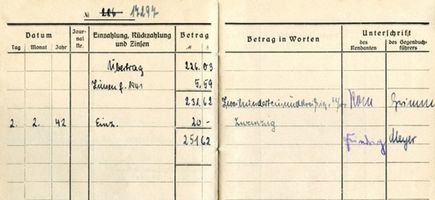 № 206 17297
Datum
Tag Monat Jahr
Journal Nr.
Einzahlung, Rückzahlung und Zinsen
Betrag
Betrag in Worten
Unterschrift
des Rendanten
des Gegenbuchführers
Übertrag 226 03
Zinsen f. 1941 5,59
231 62 Zweihunderteinunddreißig
2. 2. 42 Einz. 20 – Zwanzig
251 62 Meyer